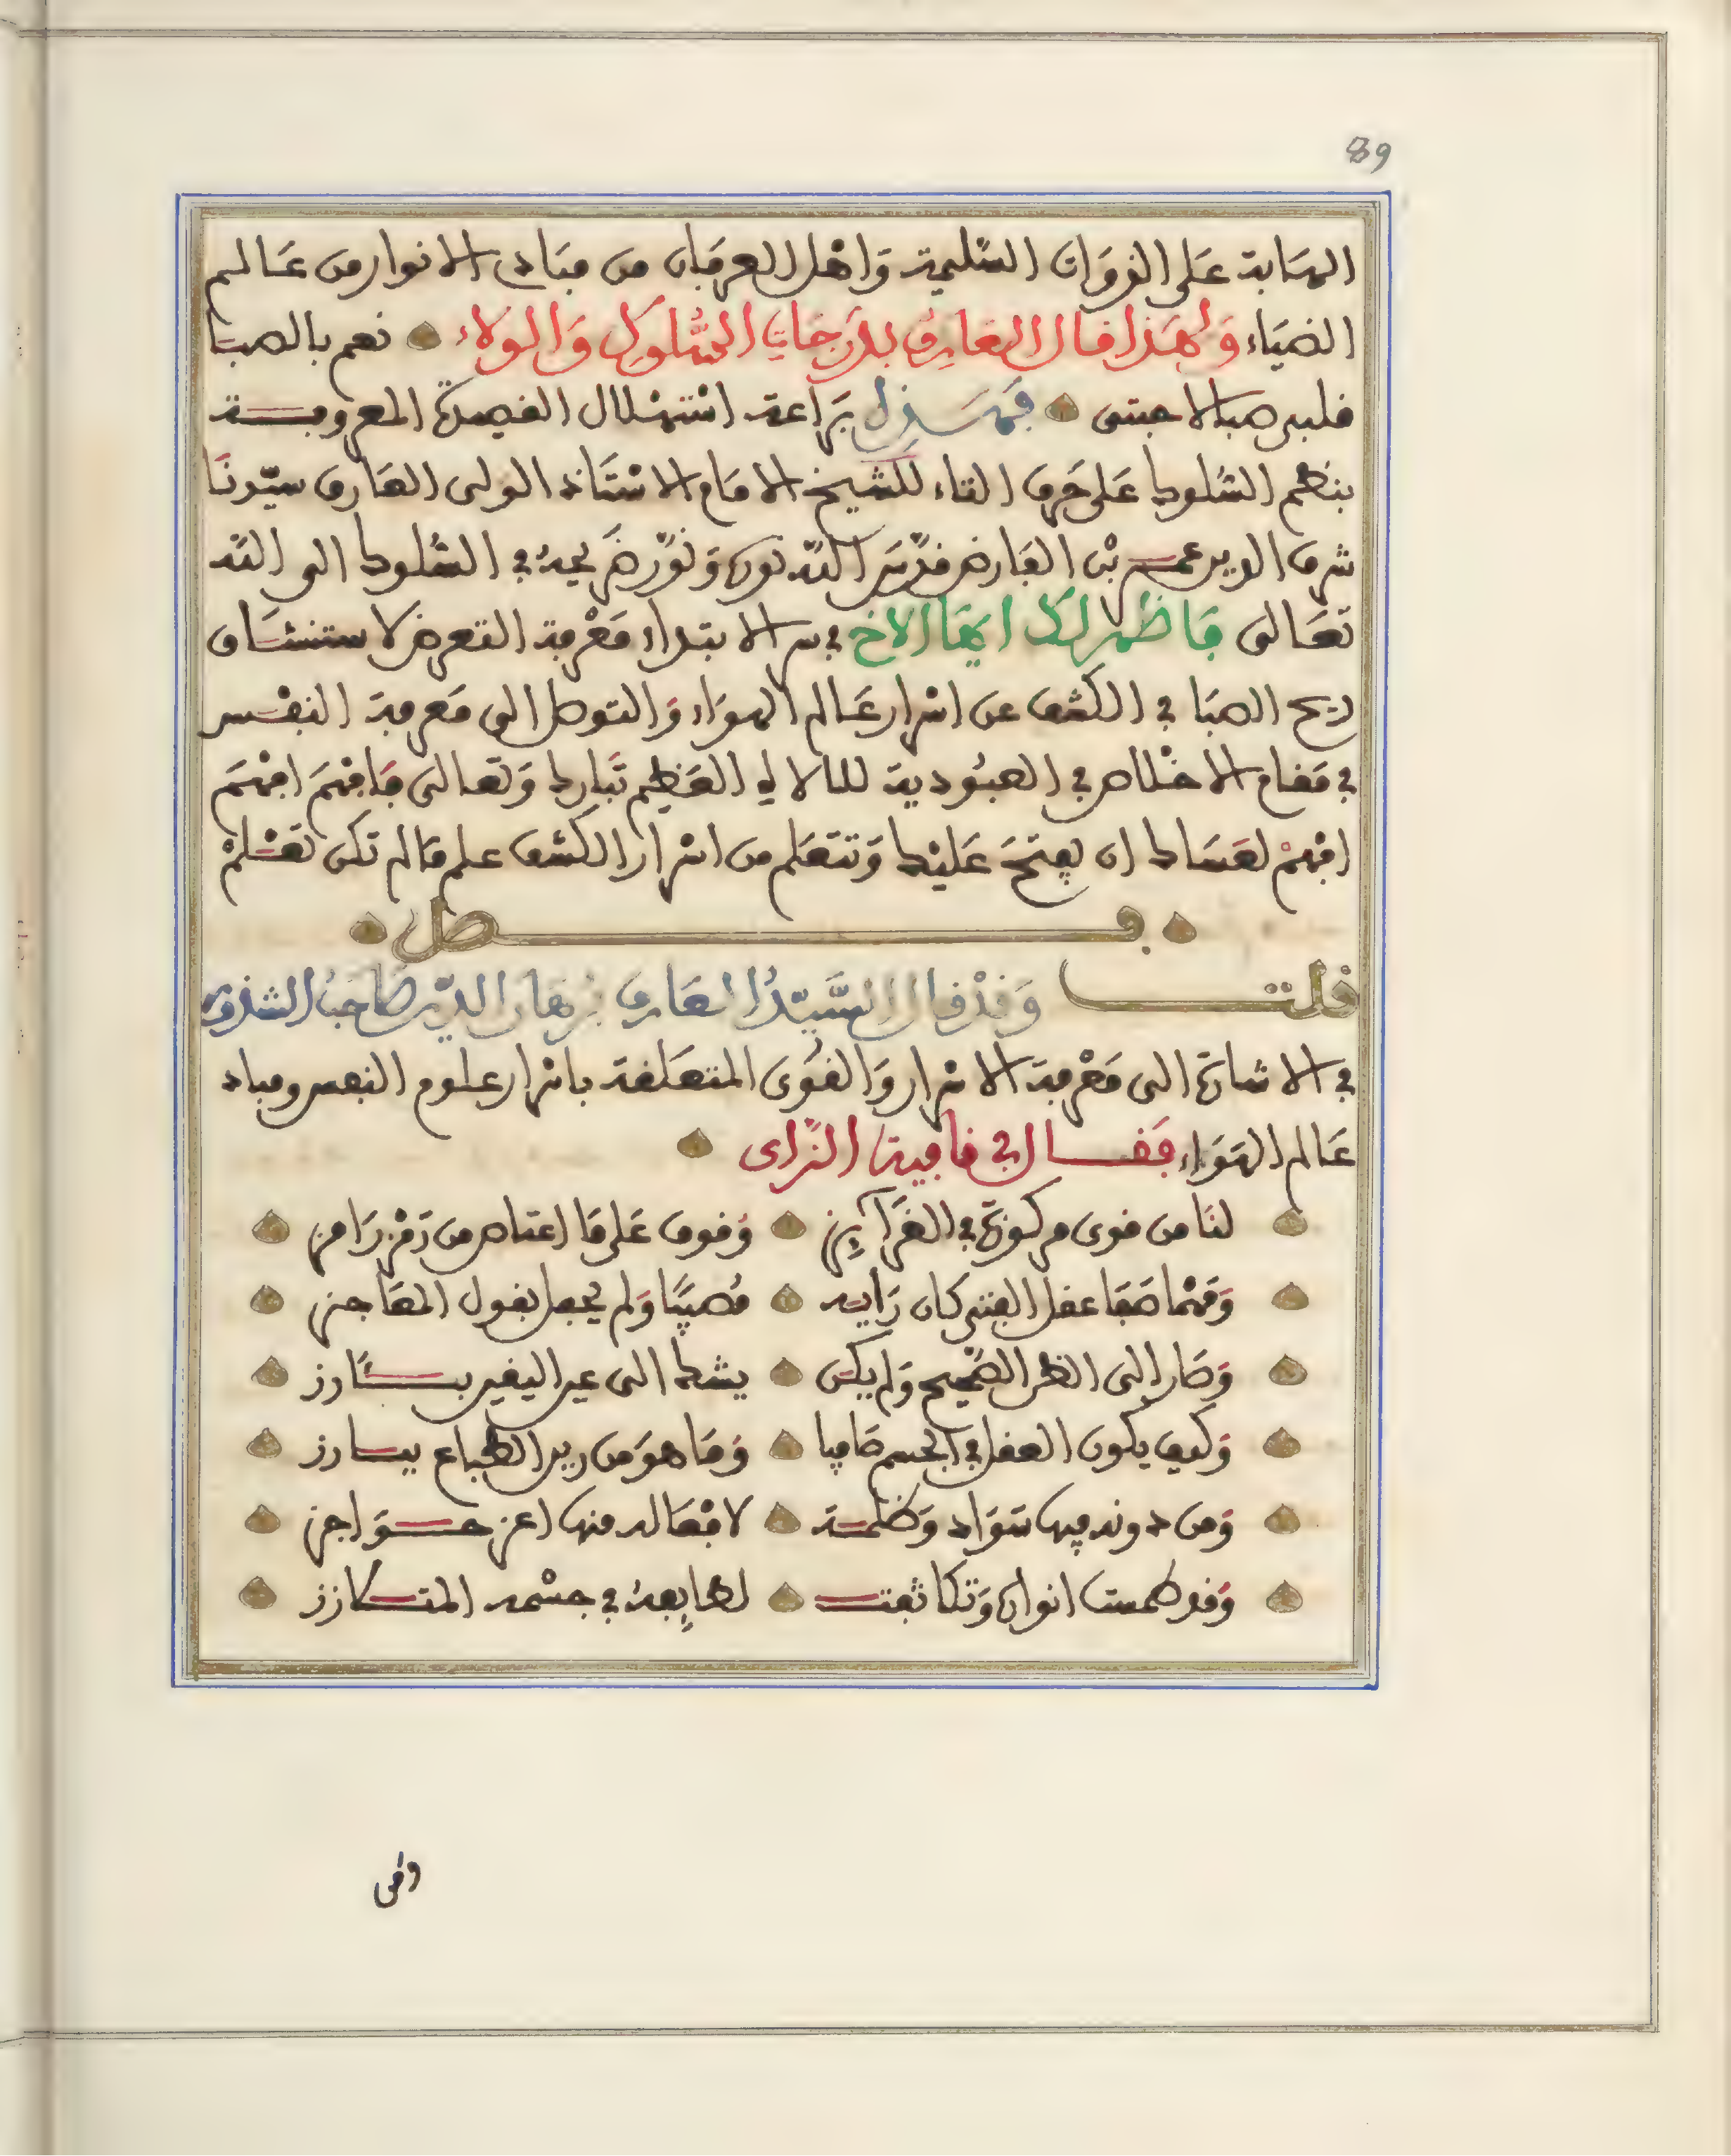 89
الهابة على الذوات السليمة واهل العرفان من مبادى الانوار من عالم
الضياء ولهذا قال العارف بدرجات السلوك والولاء نعم بالصبا
قلبى صبا لاحبتى فهذا براعة استهلال القصيدة المعروفة
بنظم السلوك على حرف التاء للشيخ الامام الاستاذ الولى العارف سيدنا
شرف الدين عمر بن الفارض قدس الله نوره ونور ضريحه في السلوك الى الله
تعالى فاظهر لك ايها الاخ في سر الابتداء معرفة التعرض لاستنشاق
ريح الصبا في الكشف عن اسرار عالم الهواء والتوصل الى معرفة النفس
في مقام الاخلاص في العبودية للالاه العظيم تبارك وتعالى فافهم افهم
افهم لعساك ان يفتح عليك وتتعلم من اسرار الكشف علم مالم تكن تعلم
فصل
قلت وقد قال السيد العارف برهان الدين صاحب الشذور
في الاشارة الى معرفة الاسرار والقوى المتعلقة باسرار علوم النفس ومباد
عالم الهواء فقال في قافية الزاى
لنا من قوى مركوزة في الغرآيز وقوف على ما اعتاص من رمز رامز
ومهما صفا عقل الفتى كان رايه مصيبا ولم يحفل بقول المعاجز
وصار الى الظر الصحيح ولم يكن يشك الى عير اليقين بـارز
وكيف يكون العقل في الجسم صافيا وما هو من رين الطباع ببارز
ومن دونه فيها سواد وظلمة لافعاله منها اعز حواجز
وقد طمست انواره وتكاثفت لها بعد في جسمه المتكازز
وفى